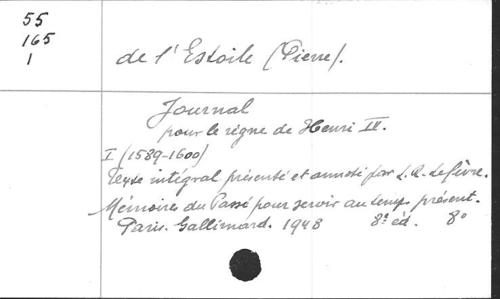 55
165
1
de l'Estoile (Pierre).
Journal
pour le règne de Henri IV.
I (1589-1600)
Texte intégral présenté et annoté par L. R. Lefèvre.
Mémoires du Passé pour servir au temps présent.
Paris. Gallimard. 1948 8e éd. 8°